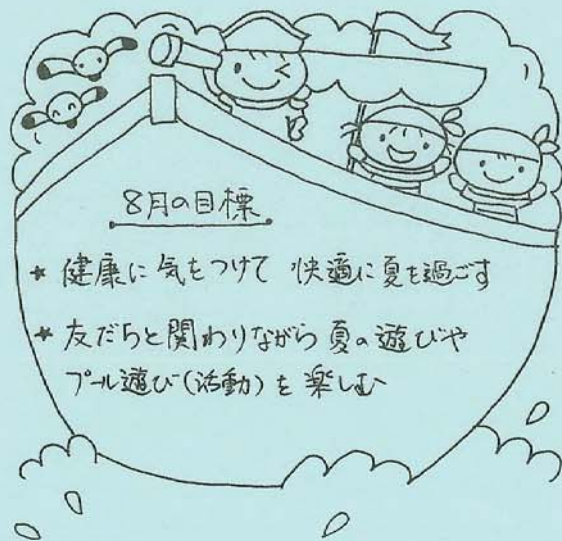 8月の目標
* 健康に気をつけて 快適に夏を過ごす
* 友だちと関わりながら 夏の遊びや
プール遊び(活動)を楽しむ